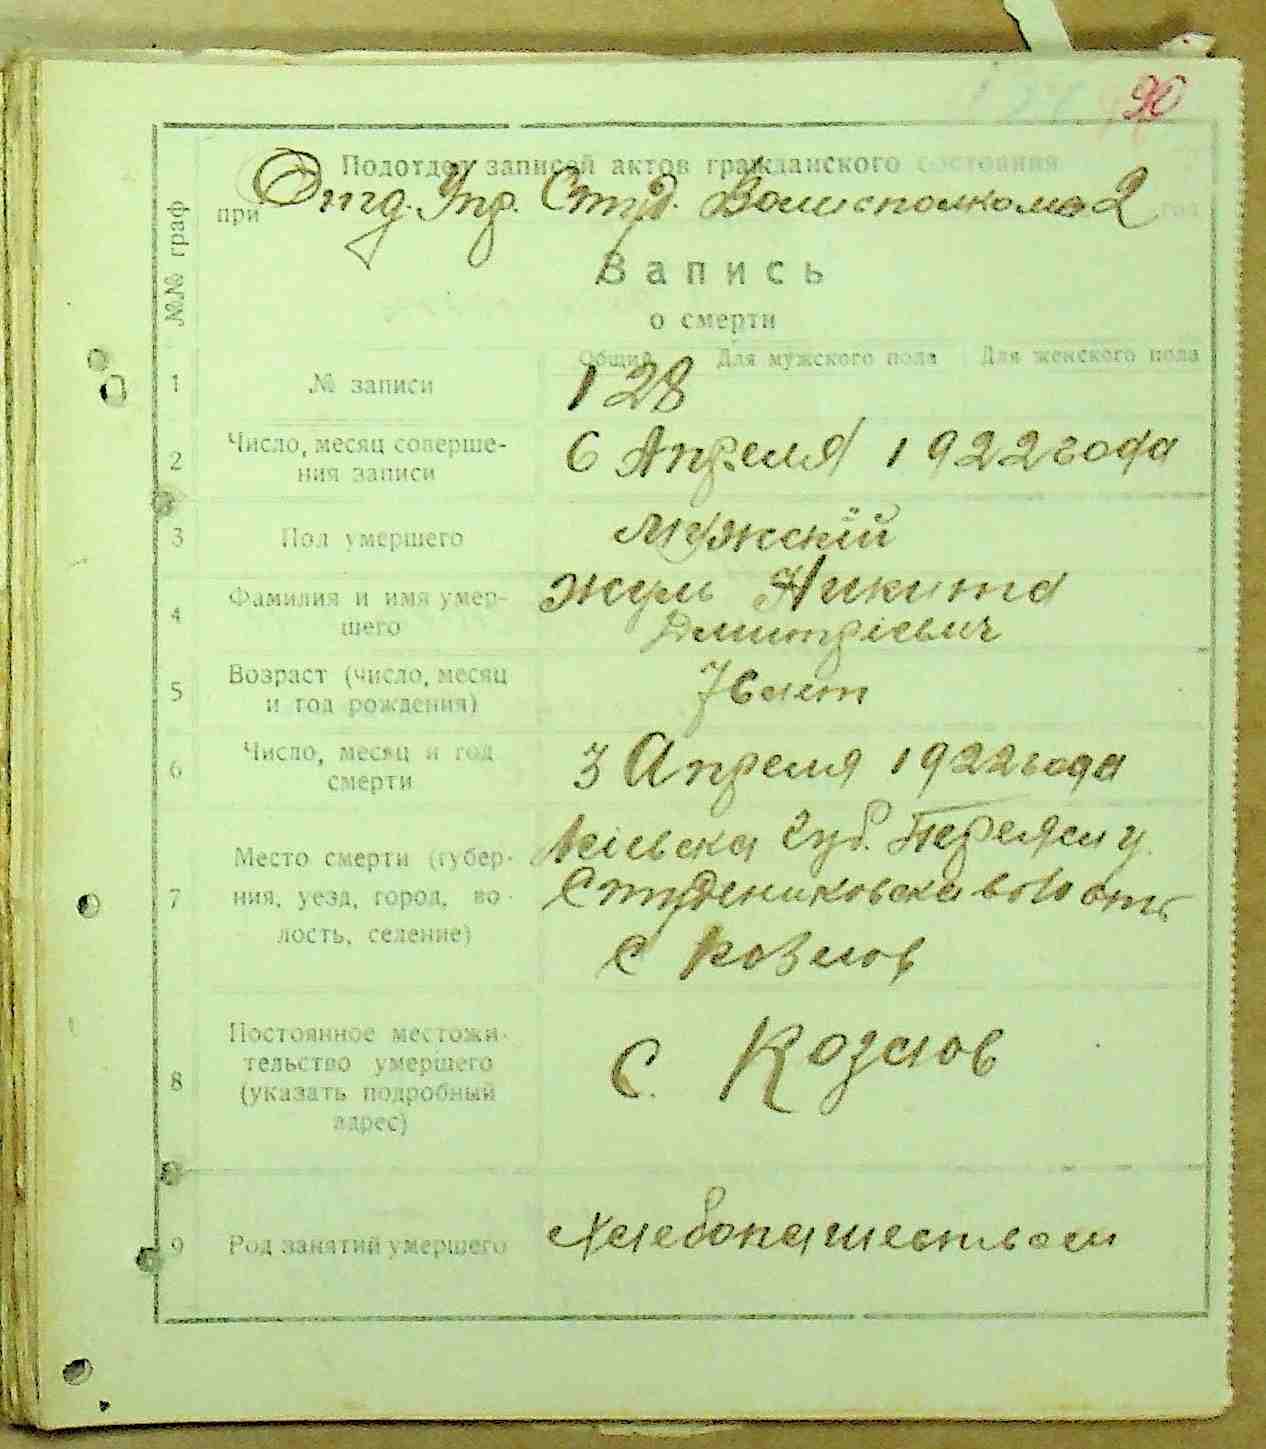 90
Подотдел записей актов гражданского состояния
при Отд. Упр. Студ. Волисполкома 2 год
№№ граф
Запись
о смерти
Общий Для мужского пола Для женского пола
1 № записи 128
2 Число, месяц соверше-
ния записи 6 Апреля 1922 года
3 Пол умершего мужскій
4 Фамилия и имя умер-
шего Жум Никита
Дмитріевич
5 Возраст (число, месяц
и год рождения) 76 лет
6 Число, месяц и год
смерти 3 Апреля 1922 года
7 Место смерти (губер-
ния, уезд, город, во-
лость, селение) Кіевска губ. Переясл у.
Студениковска волость
с Козлов
8 Постоянное местожи-
тельство умершего
(указать подробный
адрес) С. Козлов
9 Род занятий умершего Хлебопашеством